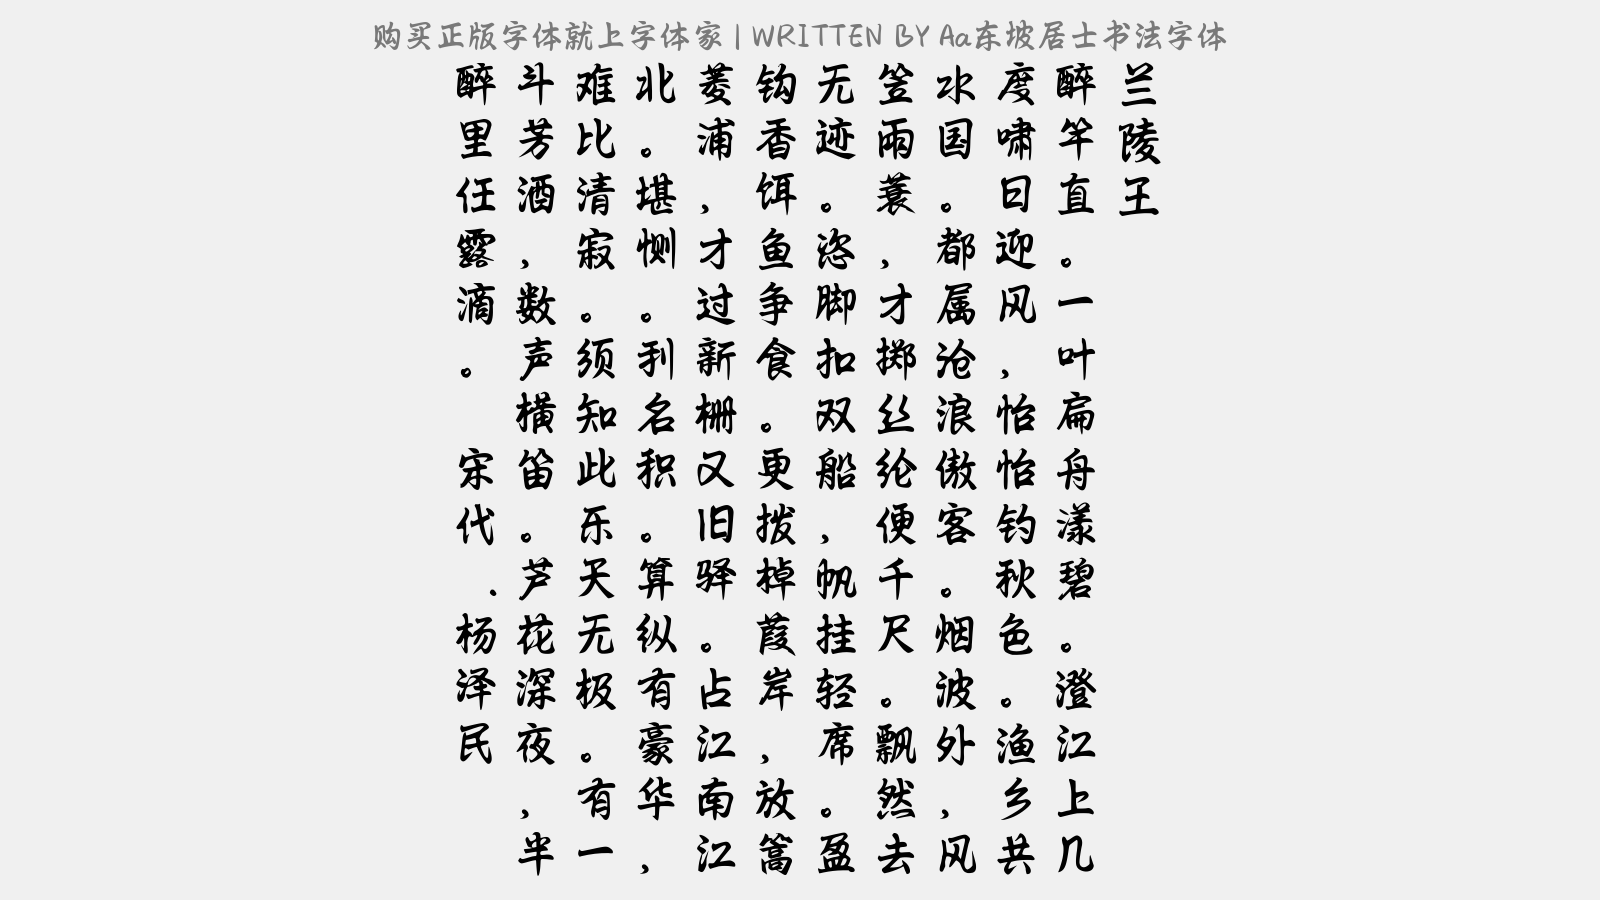 购买正版字体就上字体家 | WRITTEN BY Aa东坡居士书法字体
兰陵王
醉竿直。一叶扁舟漾碧。澄江上几
度啸日迎风，怡怡钓秋色。渔乡共
水国。都属沧浪傲客。烟波外，风
笠雨蓑，才掷丝纶便千尺。飘然去
无迹。恣脚扣双船，帆挂轻席。盈
钩香饵鱼争食。更拨棹葭岸，放篙
菱浦，才过新栅又旧驿。占江南江
北。堪恻。利名积。算纵有豪华，
难比清寂。须知此乐天无极。有一
斗芳酒，数声横笛。芦花深夜，半
醉里任露滴。
宋代.杨泽民